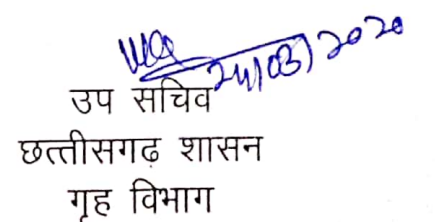 24/03/2020
उप सचिव
छत्तीसगढ़ शासन
गृह विभाग